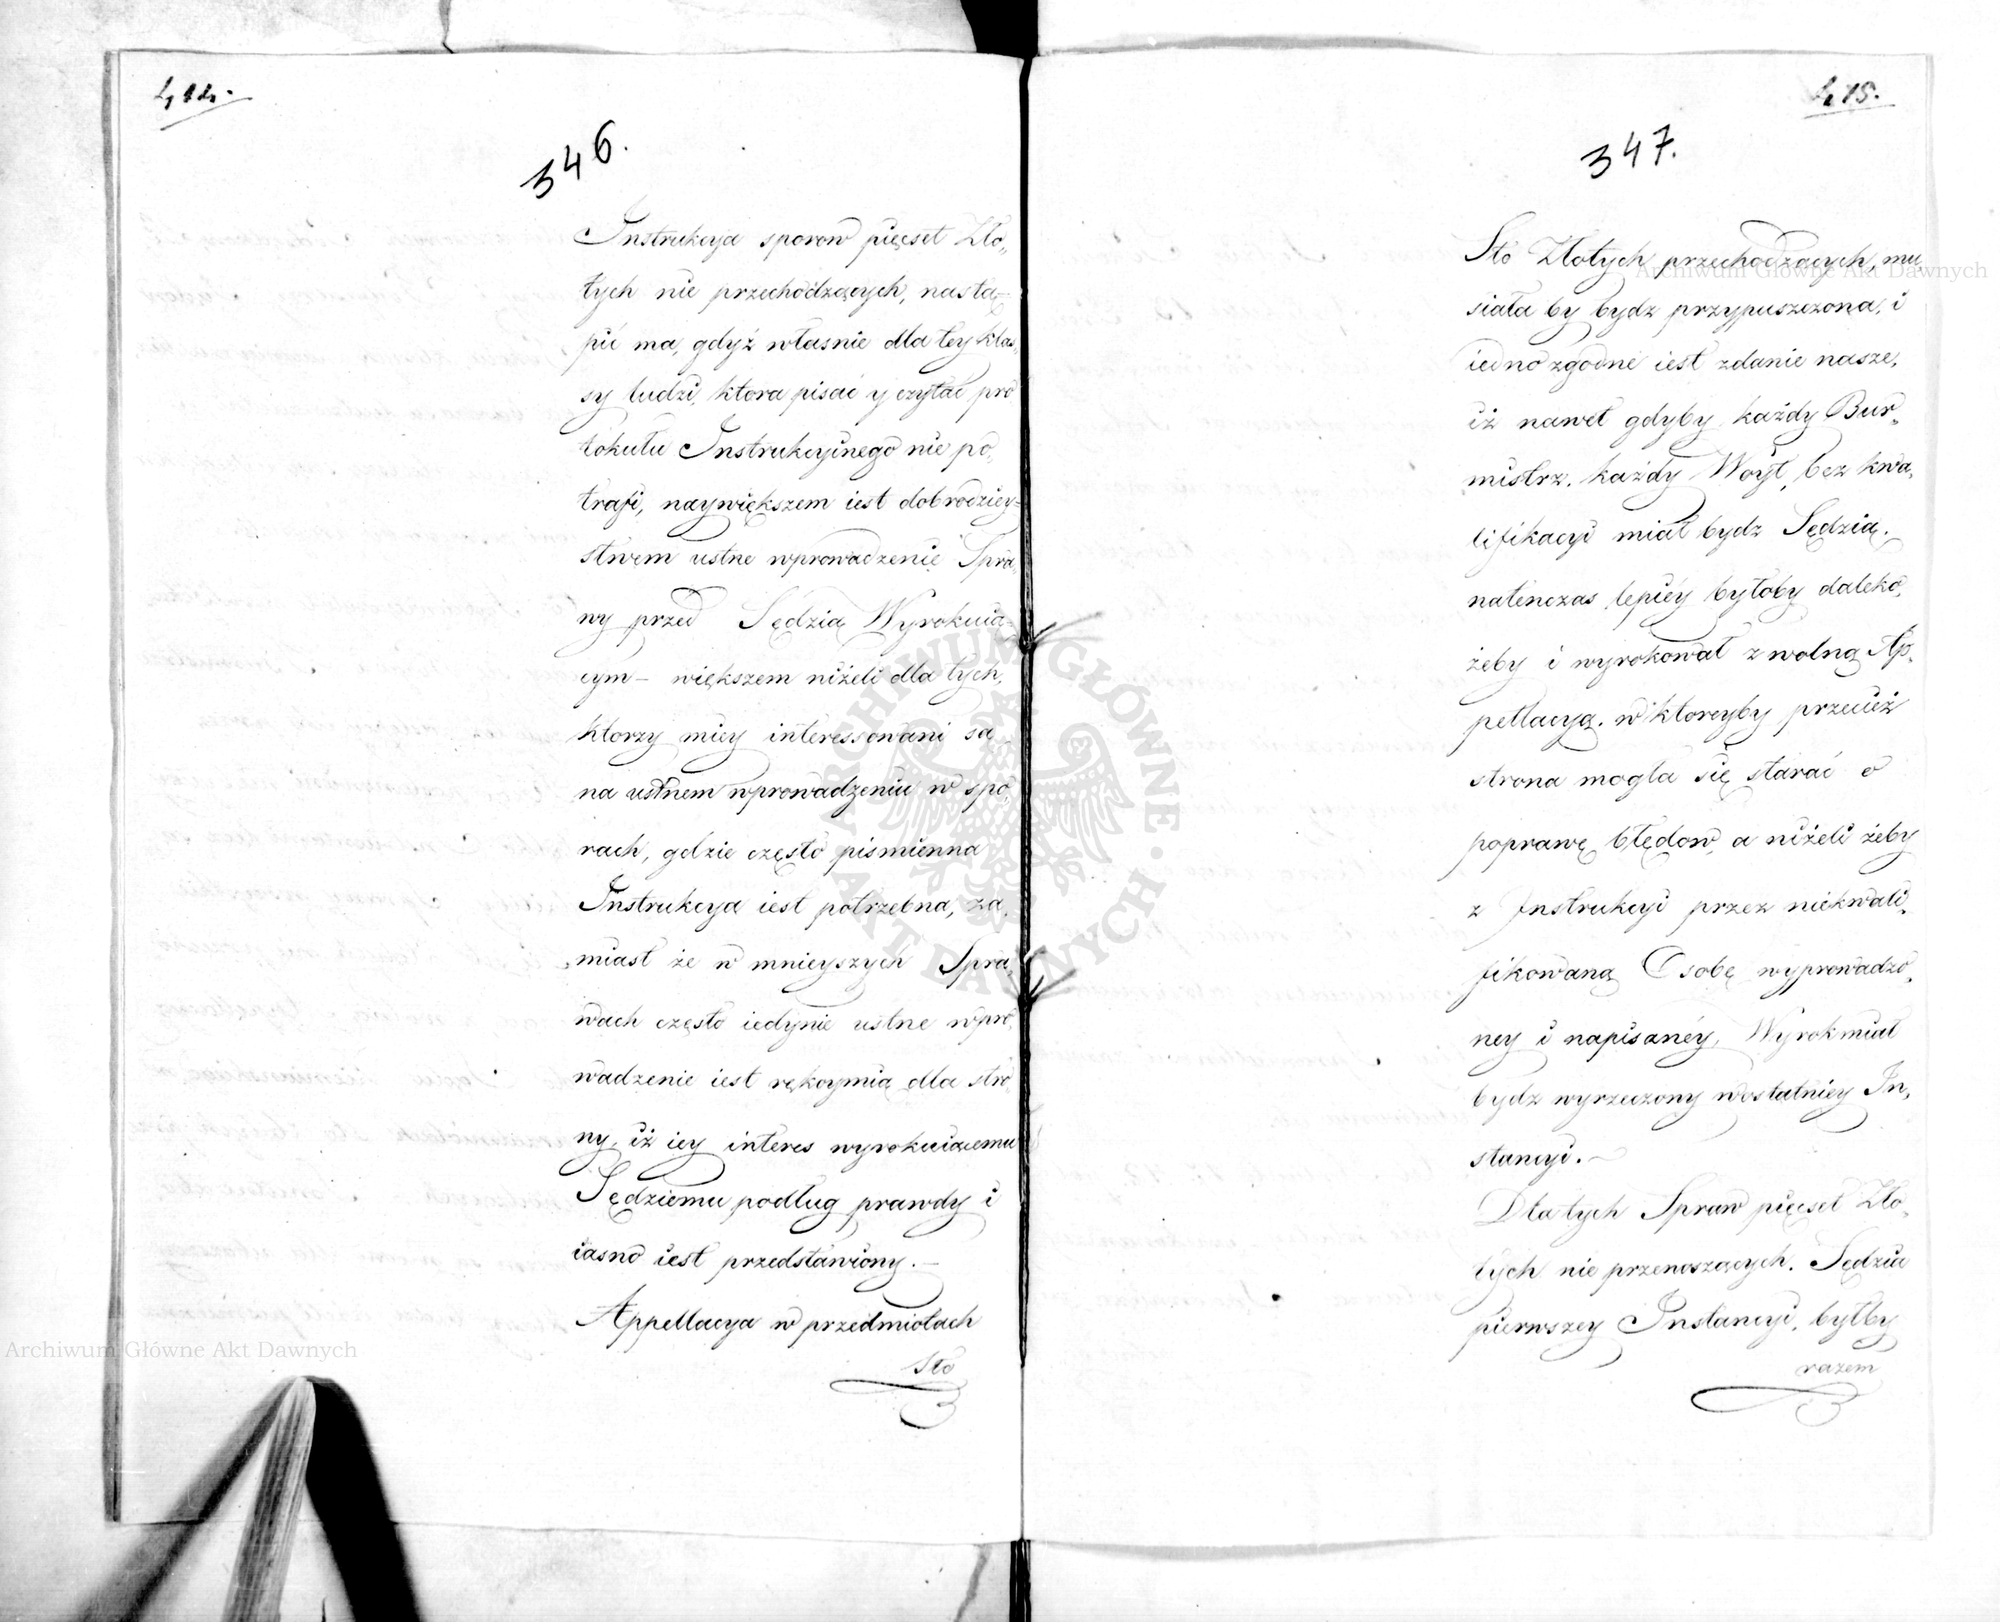 414.
346.
Instrukcya sporow pięcset Zło„
tych nie przechodzących, nastą„
pić ma, gdyż własnie dla tey klas„
sy ludzi, ktora pisać y czytać pro„
tokułu Instrukcyinego nie po„
trafi, naywiększem iest dobrodziey„
stwem ustne wprowadzenie Spra„
wy przed Sędzią Wyrokuią„
cym – większem niżeli dla tych,
ktorzy miey interessowani są
na ustnem wprowadzeniu w spo„
rach, gdzie często pismienna
Instrukcya iest potrzebna, za„
miast że w mnieyszych Spra„
wach często iedynie ustne wpro„
wadzenie iest rękoymią dla stro„
ny, iż iey interes wyrokuiącemu
Sędziemu podług prawdy i
iasno iest przedstawiony. –
Appellacya w przedmiotach
Sto
415.
347.
Sto Złotych przechodzących, mu„
siała by bydz przypuszczona, i
iednozgodne iest zdanie nasze,
iż nawet gdyby każdy Bur„
mistrz, każdy Woyt, bez kwa„
lifikacyi miał bydz Sędzią,
natenczas lepiéy byłoby daleko,
żeby i wyrokował z wolną Ap„
pellacyą, w ktoreyby przecież
strona mogła się starać o
poprawę błędow, a niżeli żeby
z Instrukcyi przez niekwali„
fikowaną Osobę wyprowadzo„
ney i napisanéy, Wyrok miał
bydz wyrzeczony w ostatniey In„
stancyi. –
Dla tych Spraw pięcset Zło„
tych nie przenoszących, Sędzia
pierwszey Instancyi, byłby
razem
Archiwum Główne Akt Dawnych
Archiwum Główne Akt Dawnych
ARCHIWUM GŁÓWNE · AKT DAWNYCH ·